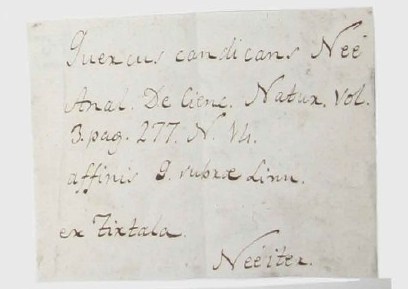 Quercus candicans Neé
Anal. De Cienc. Natur. Vol.
3. pag. 277. N 14.
affinis Q. rubræ Linn.
ex Tixtala.
Neé iter.